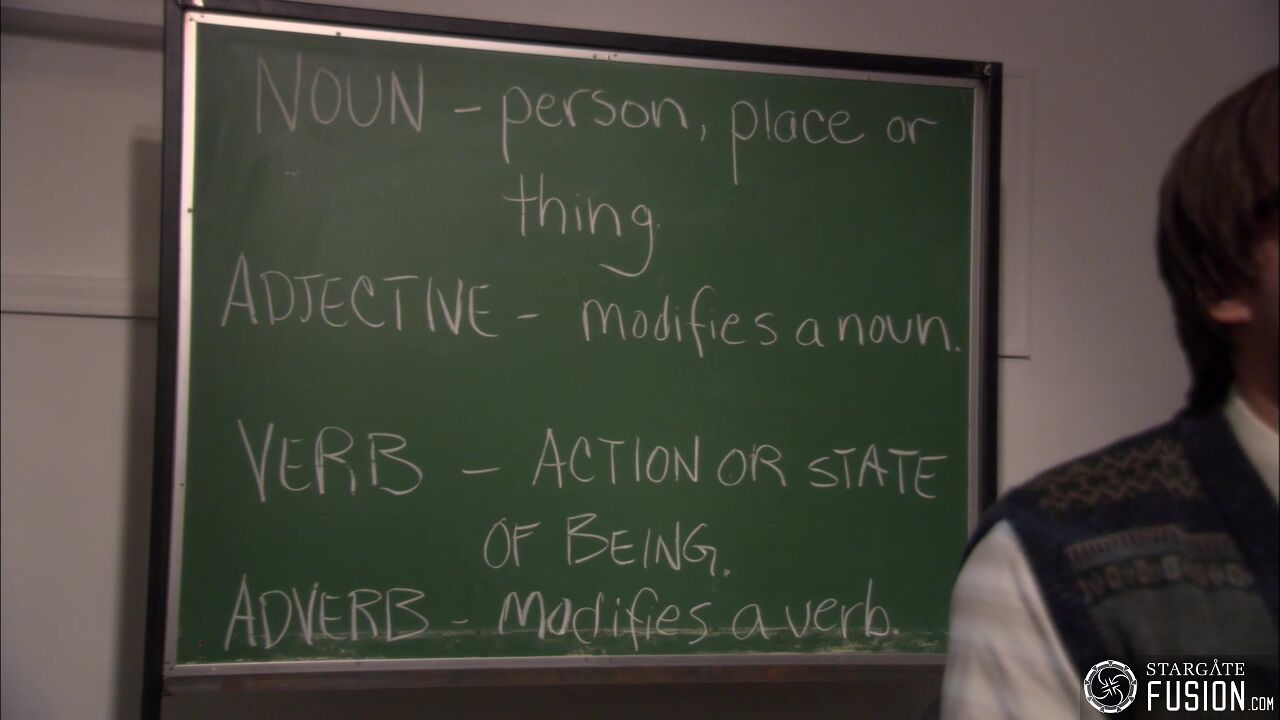 NOUN - person, place or
thing.
ADJECTIVE - modifies a noun.
VERB - ACTION OR STATE
OF BEING.
ADVERB - Modifies a verb.
STARGATE
FUSION.COM